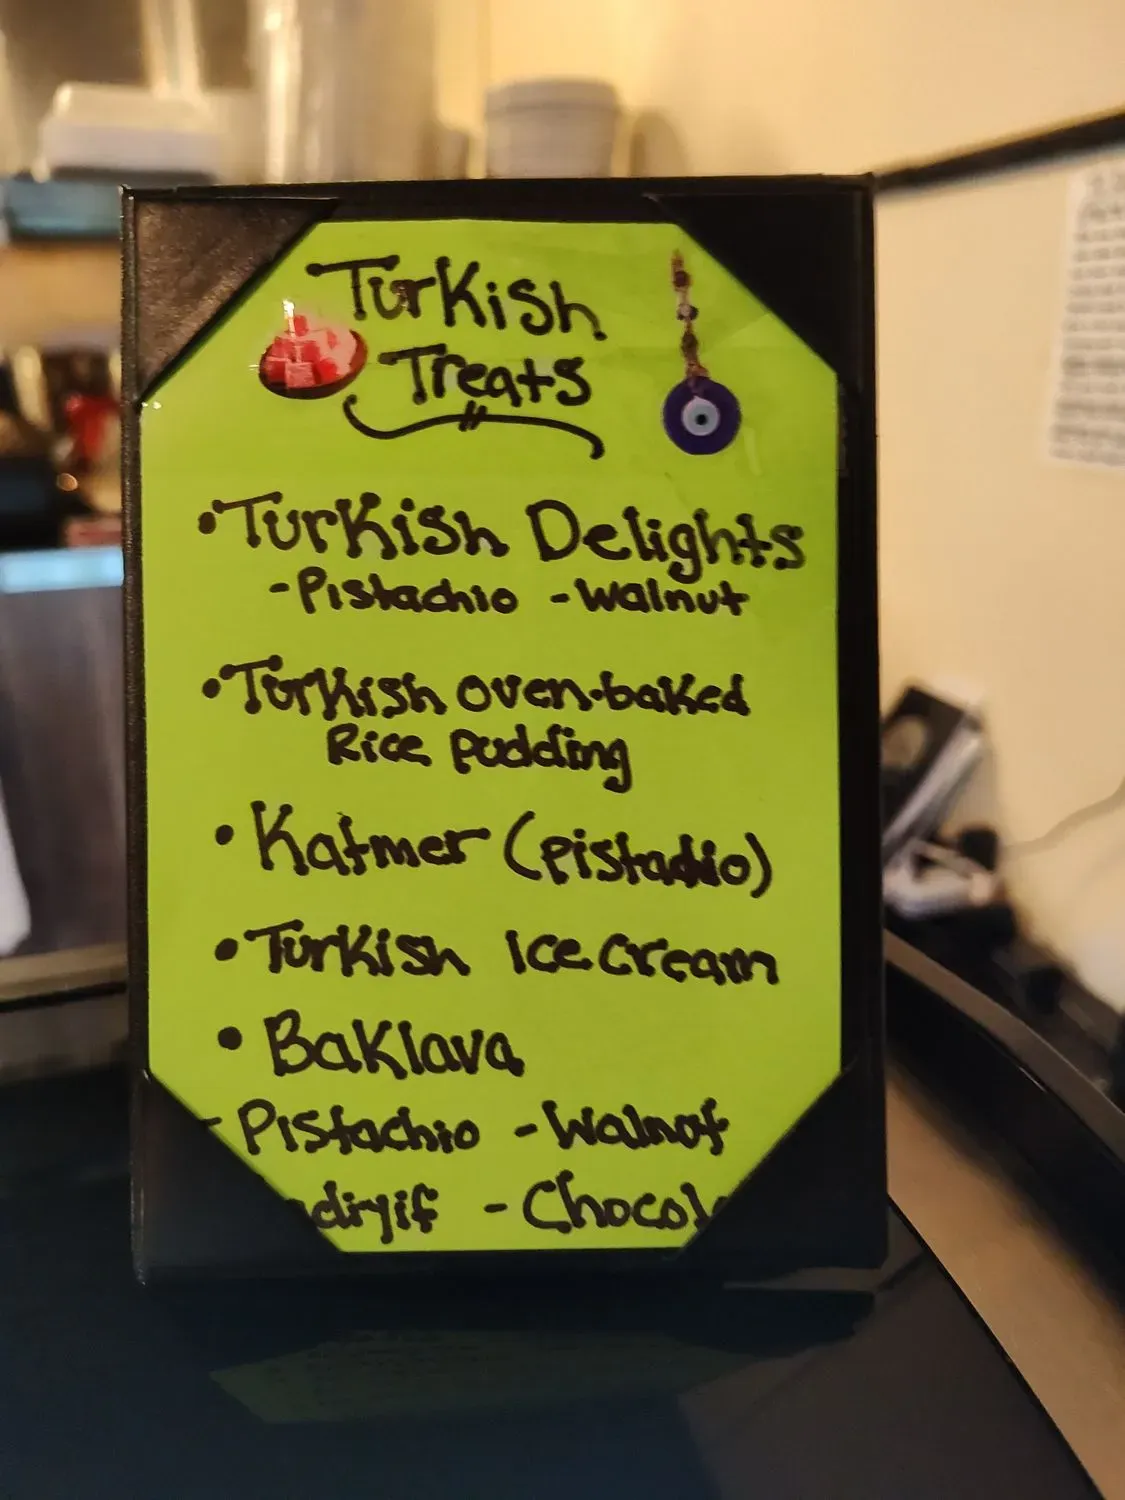 Turkish
Treats
•Turkish Delights
-Pistachio -Walnut
•Turkish oven-baked
Rice pudding
•Katmer (pistachio)
•Turkish ice cream
•Baklava
-Pistachio -Walnut
adiyif -Chocol